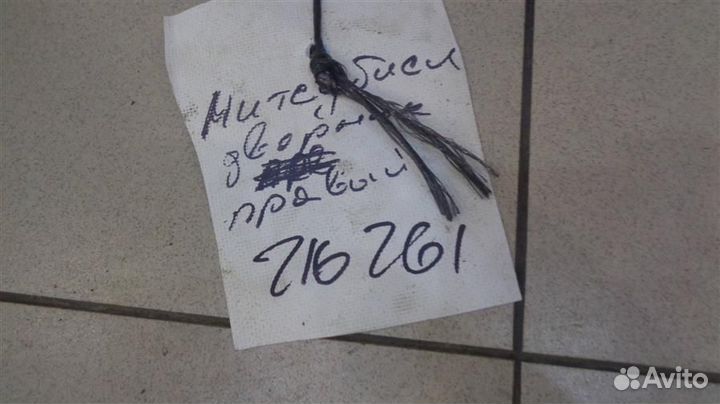 Митсубиси
дворник
правый
216 261
Avito